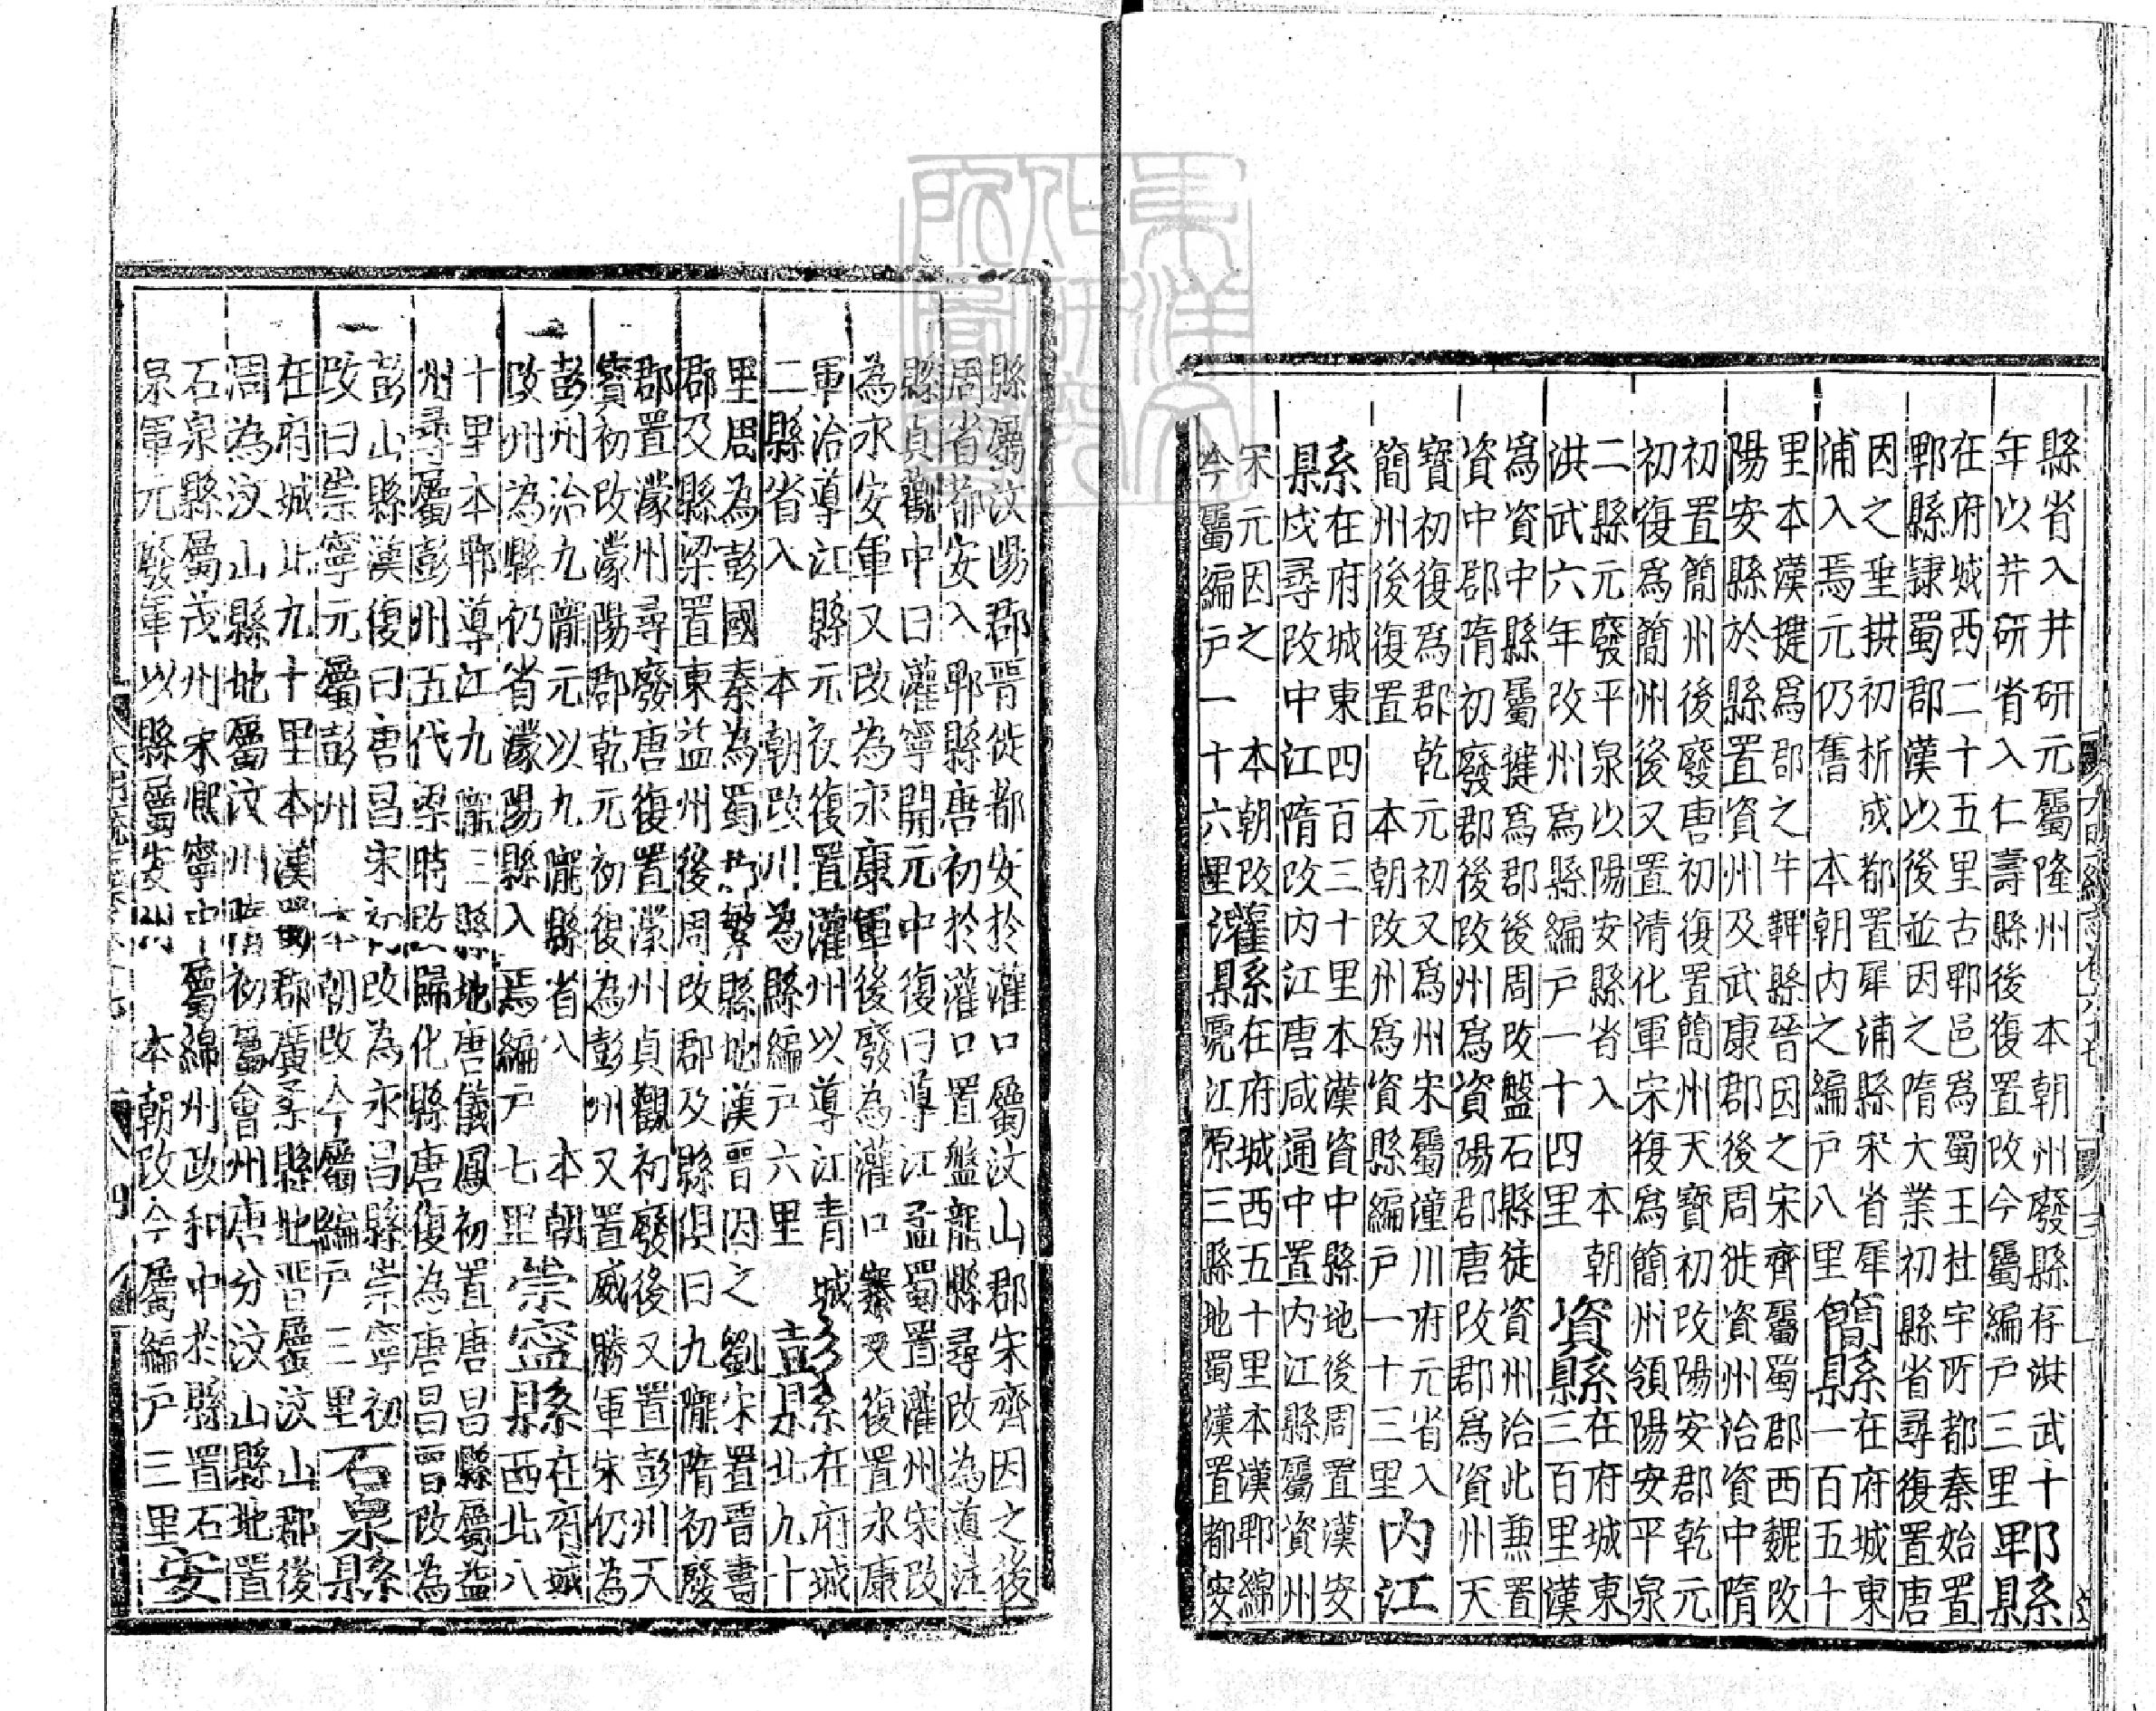 縣省入井研元屬隆州　本朝州廢縣存洪武十
年以井研省入仁壽縣後復置改今屬編戶三里
郫縣
在府城西二十五里古郫邑爲蜀王杜宇所都秦始置
郫縣隷蜀郡漢以後並因之隋大業初縣省尋復置唐
因之垂拱初析成都置犀浦縣宋省犀
浦入焉元仍舊　本朝內之編戶八里
簡縣
在府城東
一百五十
里本漢揵爲郡之牛鞞縣晉因之宋齊屬蜀郡西魏改
陽安縣於縣置資州及武康郡後周徙資州治資中隋
初置簡州後廢唐初復置簡州天寶初改陽安郡乾元
初復爲簡州後又置清化軍宋復爲簡州領陽安平泉
二縣元廢平泉以陽安縣省入　本朝
洪武六年改州爲縣編戶一十四里
資縣
在府城東
三百里漢
爲資中縣屬揵爲郡後周改盤石縣徙資州治此兼置
資中郡隋初廢郡後改州爲資陽郡唐改郡爲資州天
寶初復爲郡　乾元初又爲州宋屬潼川府元省入
簡州後復置　本朝改州爲資縣編戶一十三里
內江
縣
在府城東四百三十里本漢資中縣地後周置漢安
戍尋改中江隋改內江唐咸通中置內江縣屬資州
宋元因之　本朝改
今屬編戶一十六里
灌縣
在府城西五十里本漢郫綿
虒江原三縣地蜀漢置都安
縣屬汶陽郡晉徙都安於灌口屬汶山郡宋齊因之後
周省都安入郫縣唐初於灌口置盤龍縣尋改為導江
縣貞觀中曰灌寧開元中復曰導江孟蜀置灌州宋改
為永安軍又改為永康軍後廢為灌口寨又復置永康
軍治導江縣元初復置灌州以導江青城
二縣省入　本朝改州為縣編戶六里
彭縣
在府城
北九十
里周為彭國秦為蜀郡繁縣地漢晉因之劉宋置晋壽
郡及縣梁置東益州後周改郡及縣俱曰九隴隋初廢
郡置濛州尋廢唐復置濛州貞觀初廢後又置彭州天
寶初改濛陽郡乾元初復為彭州又置威勝軍宋仍為
彭州治九隴元以九隴縣省入　本朝
改州為縣仍省濛陽縣入焉編戶七里
崇寧縣
在府城
西北八
十里本郫導江九隴三縣地唐儀鳳初置唐昌縣屬益
州尋屬彭州五代梁時改歸化縣唐復為唐昌晉改為
彭山縣漢復曰唐昌宋初改為永昌縣崇寧初
改曰崇寧元屬彭州　本朝改今屬編戶三里
石泉縣
在府城北九十里本漢蜀郡廣柔縣地晉屬汶山郡後
周為汶山縣地屬汶州隋初屬會州唐分汶山縣地置
石泉縣屬茂州宋熙寧中屬綿州政和中於縣置石
泉軍元廢軍以縣屬安州　本朝改今屬編戶三里
安